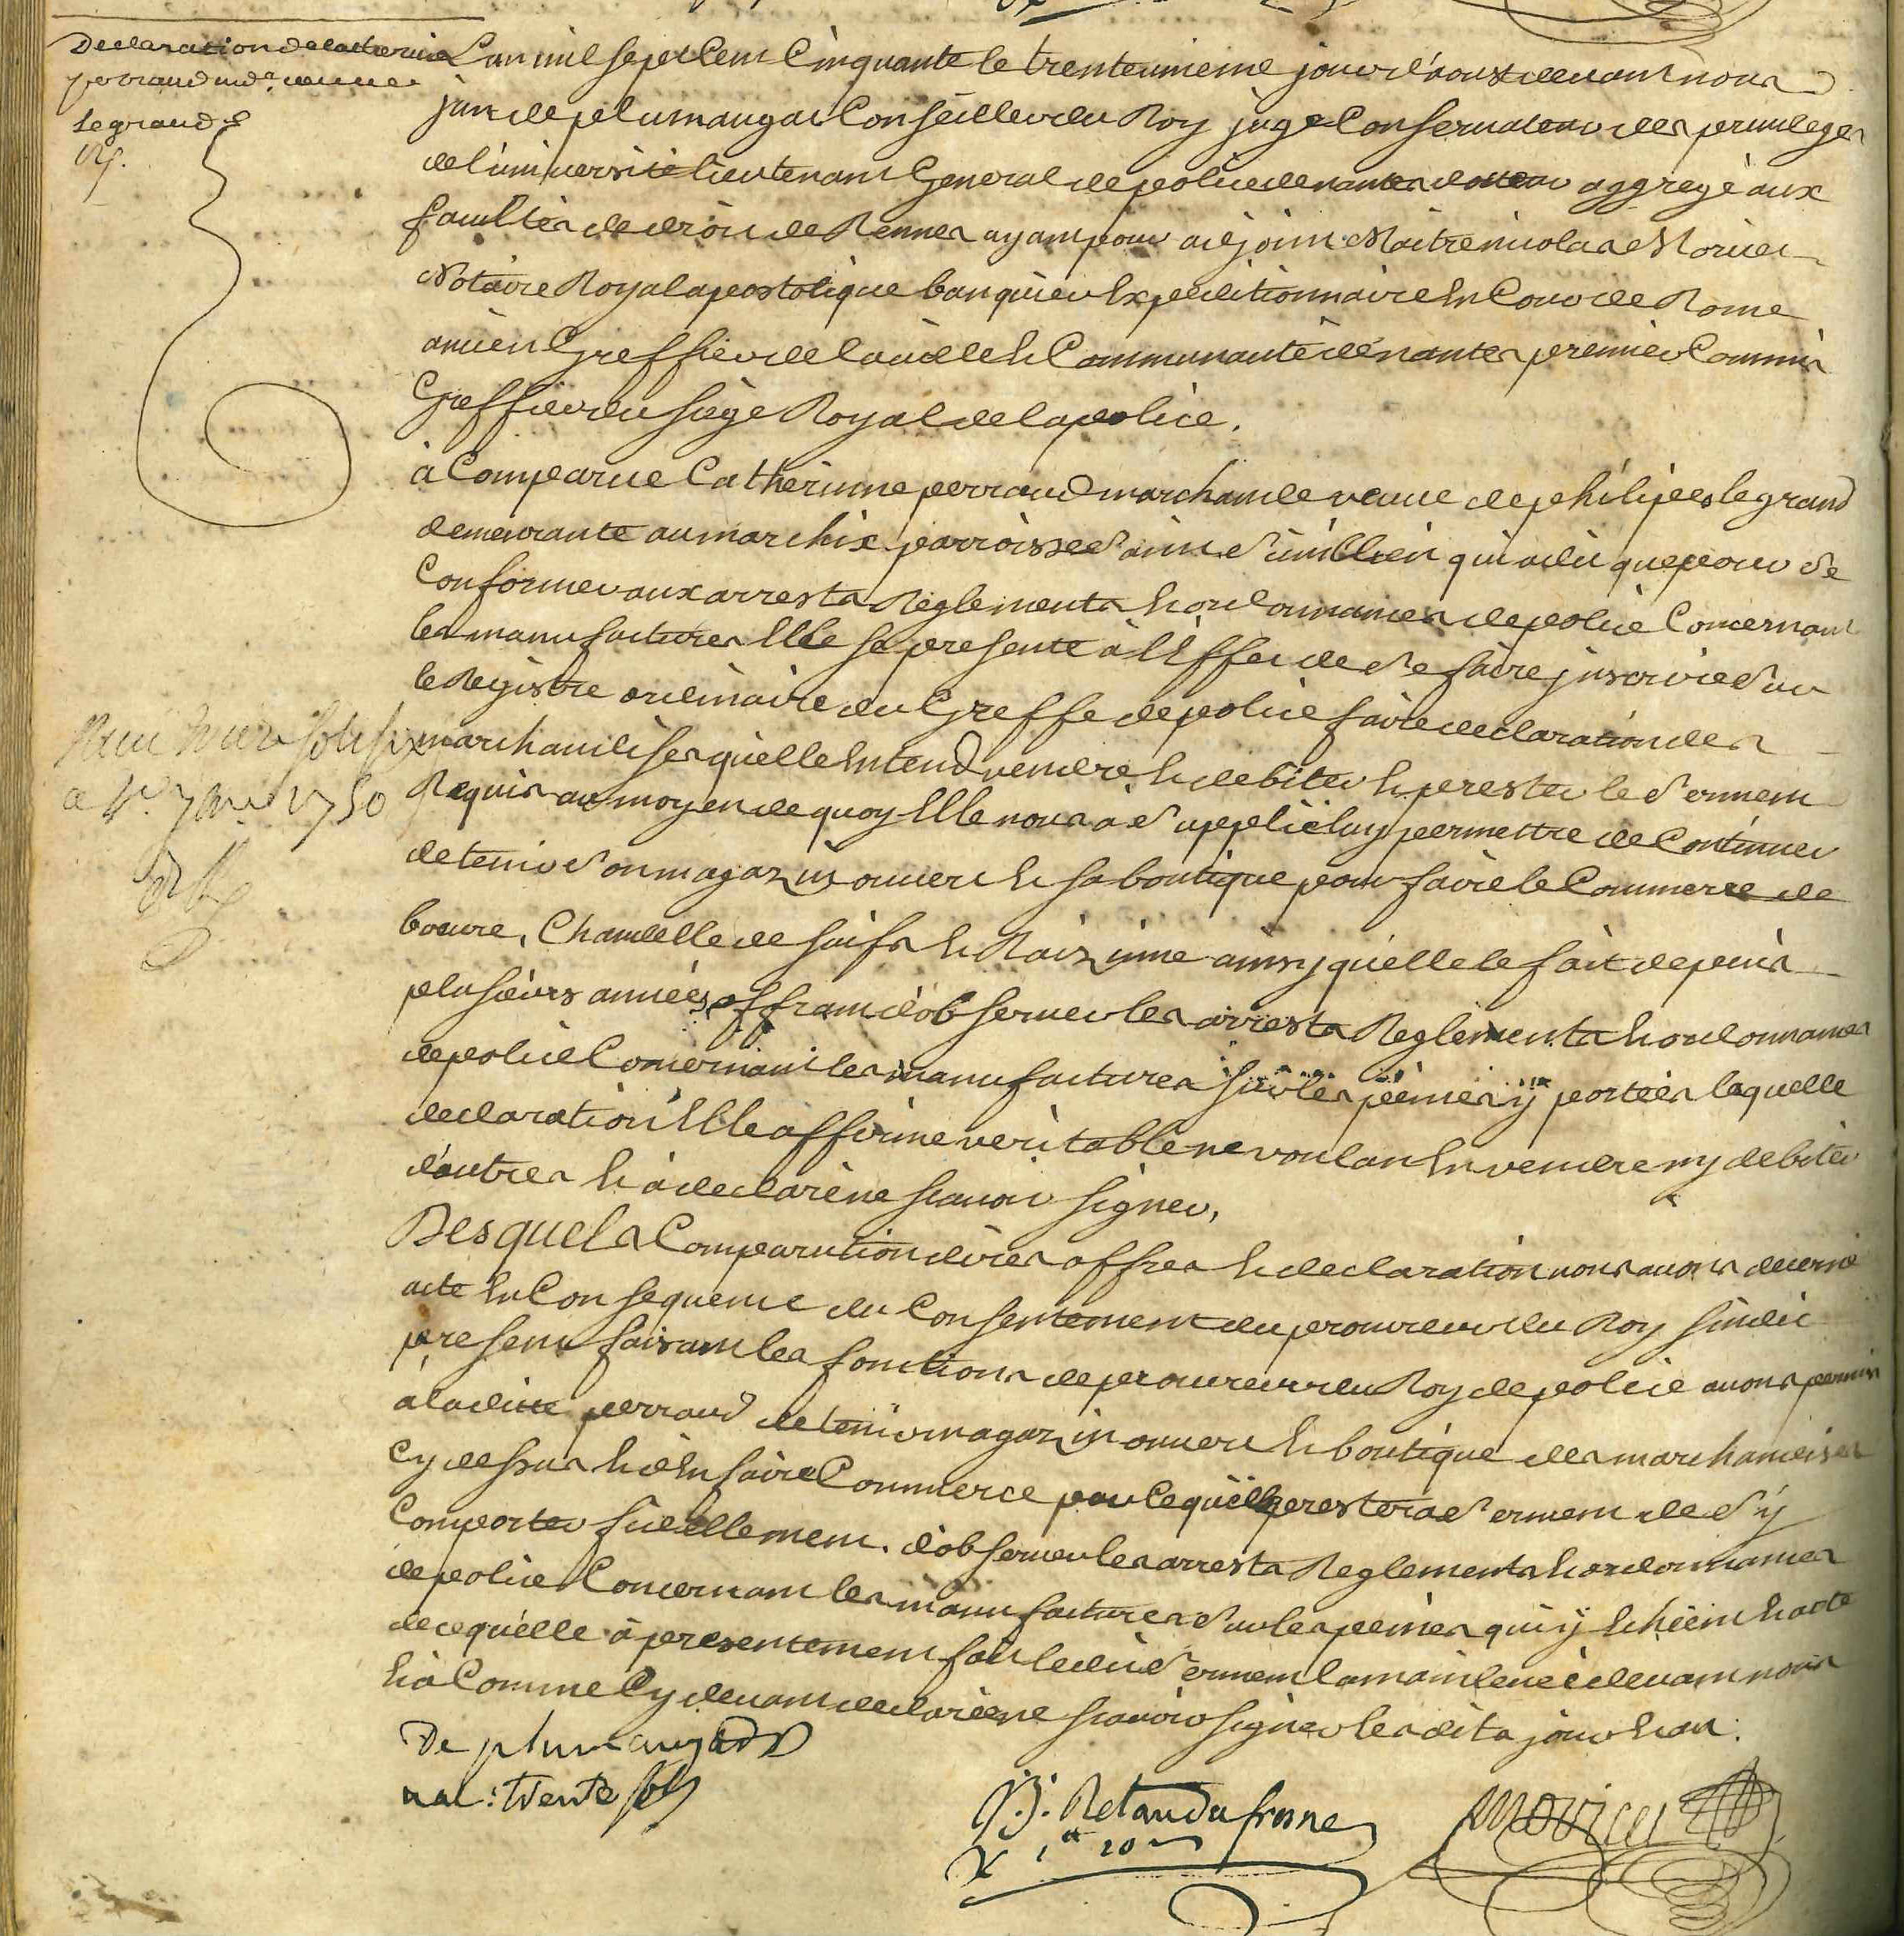 Declaration de Catherine
perraud md.e veuve
Legrand
L'an mil sept Cent Cinquante le trente unieme jour d'aoust devant nous
jan de plumaugat Conseiller du Roy juge Conservateur des privileges
de l'université lieutenant General de police de nantes docteur aggregé aux
facultés de droit de Rennes ayant pour adjoint Maitre nicolas Moricet
Notaire Royal apostolique banquier Expeditionnaire En Cour de Rome
ancien Greffier de la ville Et Communauté de nantes premier Commis
Greffier du siege Royal de la police.
à Comparue Catherinne perraud marchande veuve de philipes legrand
demeurante au marchix parroisse Saint Similien qui a dit que pour Se
Conformer aux arrests Reglements Et ordonnances de police Concernant
les manufactures Elle se presente à l'Effet de Se faire jnscrire Sur
le Registre ordinaire du Greffe de police faire declaration des
marchandises qu'elle Entend vendre Et debiter Et prester le Serment
Requis au moyen de quoy Elle nous a Supplié luy permettre de Continuer
de tenir Son magazin ouvert Et sa boutique pour faire le Commerce de
beure, Chandelle de suifs Et Raizinne ainsy qu'elle le fait depuis
plusieurs années, offrant d'observer les arrests Reglements Et ordonnances
de police Concernant les manufactures sur les peines y portées laquelle
declaration Elle affirme veritable ne voulant En vendre ny debiter
d'autres Et a declaré ne scavoir signer,
Desquels Comparution dires offres Et declaration nous avons decerné
acte En Consequence du Consentement du procureur du Roy sindic
present faisant les fonctions de procureur du Roy de police avons permis
a la ditte perraud de tenir magazin ouvert Et boutique des marchandises
Cy dessus Et d'En faire Commerce parce qu'elle prestera Serment de S'y
Comporter fidellement. d'observer les arrests Reglements Et ordonnances
de police Concernant les manufactures Sur les peines qui y Echéent Et acte
de ce qu'elle à presentement fait ledit Serment la main levée devant nous
Et à Comme Cy devant declaré ne scavoir signer les dits jour Et an.
a 4e 1750
De plumaugat
vac: trente sols
J.B. Retaudufresne
Moricet